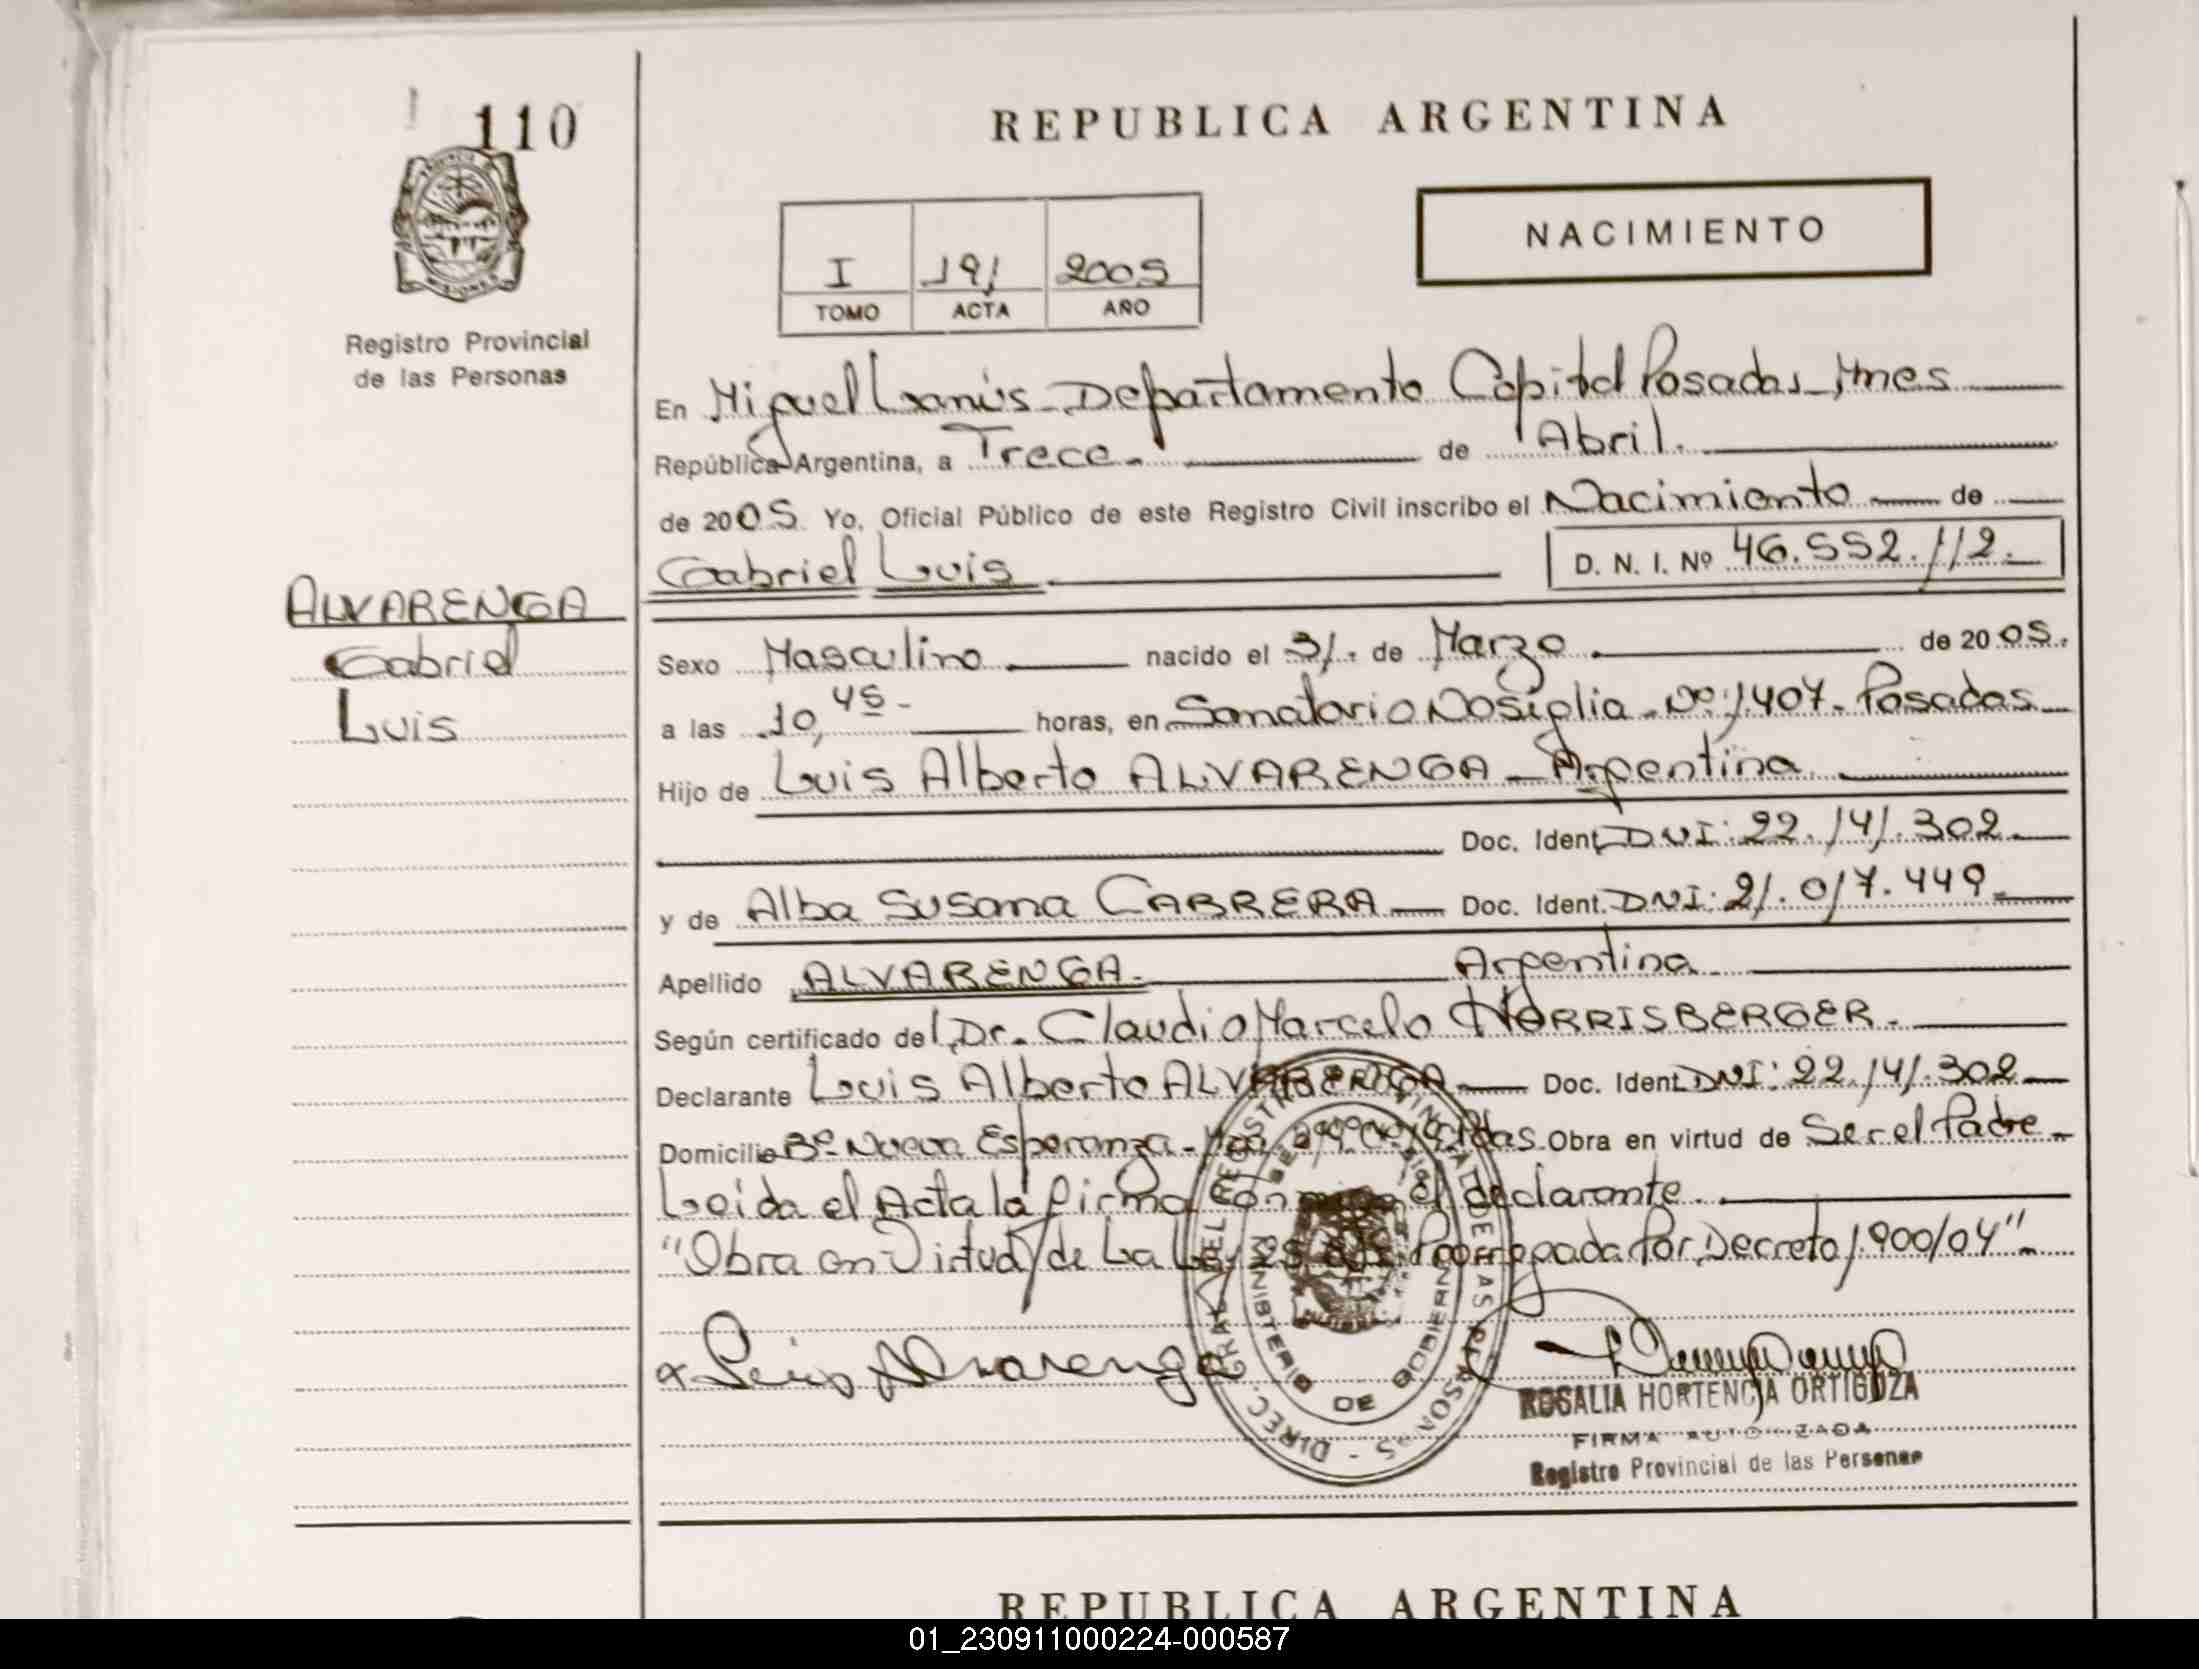 110
REPUBLICA ARGENTINA
NACIMIENTO
I 191 2005
TOMO ACTA AÑO
Registro Provincial
de las Personas
En Miguel Lanús - Departamento Capital Posadas, Mnes
República Argentina, a Trece.- de Abril.
de 2005. Yo, Oficial Público de este Registro Civil inscribo el Nacimiento de
Gabriel Luis. D. N. I. Nº 46.552.112.
ALVARENGA
Gabriel
Luis
Sexo Masculino nacido el 31. de Marzo. de 2005.
a las 10,45- horas, en Sanatorio Nosiglia - Nº: 1.407. Posadas
Hijo de Luis Alberto ALVARENGA - Argentina
Doc. Ident. DNI: 22.141.302.
y de Alba Susana CABRERA Doc. Ident. DNI: 21.017.449.
Apellido ALVARENGA. Argentina
Según certificado del Dr. Claudio Marcelo NORRISBERGER.
Declarante Luis Alberto ALVARENGA Doc. Ident. DNI: 22.141.302
Domicilio Bº Nueva Esperanza - Obra en virtud de Ser el Padre-
Leída el Acta la firma con el declarante.
"Obra en Virtud de La Ley Prorrogada Por Decreto 1900/04"
x Luis Alvarenga
DIREC. GRAL. DEL REGISTRO PROVINCIAL DE LAS PERSONAS
MINISTERIO DE GOBIERNO
ROSALIA HORTENCIA ORTIGOZA
FIRMA AUTORIZADA
Registro Provincial de las Personas
REPUBLICA ARGENTINA
01_230911000224-000587